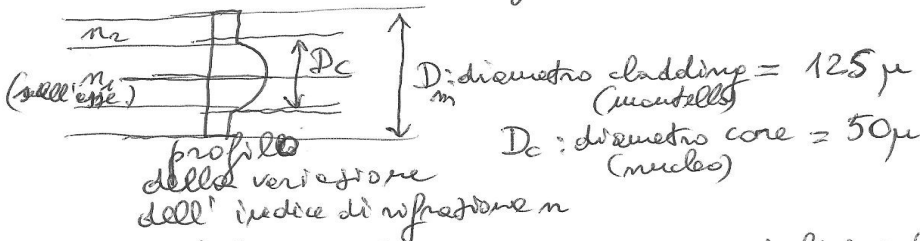 n₂
n₁
(sull'asse)
Dc
Dm: diametro cladding = 125 μ
(mantello)
Dc: diametro core = 50 μ
(nucleo)
profilo
della variazione
dell'indice di rifrazione n